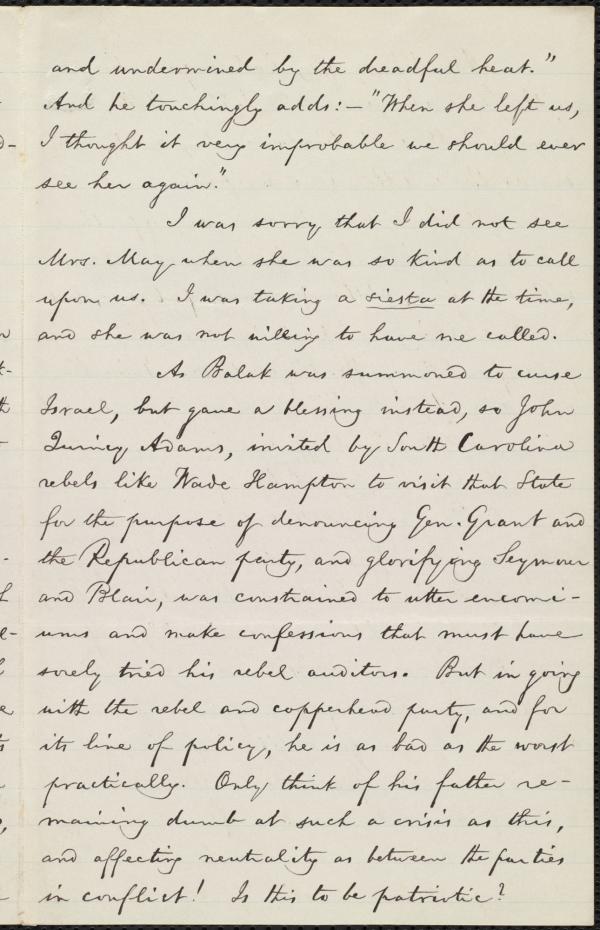 and undermined by the dreadful heat."
And he touchingly adds:— "When she left us,
I thought it very improbable we should ever
see her again."
I was sorry that I did not see
Mrs. May when she was so kind as to call
upon us. I was taking a siesta at the time,
and she was not willing to have me called.
As Balak was summoned to curse
Israel, but gave a blessing instead, so John
Quincy Adams, invited by South Carolina
rebels like Wade Hampton to visit that State
for the purpose of denouncing Gen. Grant and
the Republican party, and glorifying Seymour
and Blair, was constrained to utter encomi-
ums and make confessions that must have
sorely tried his rebel auditors. But in going
with the rebel and copperhead party, and for
its line of policy, he is as bad as the worst
practically. Only think of his father re-
maining dumb at such a crisis as this,
and affecting neutrality as between the parties
in conflict! Is this to be patriotic?